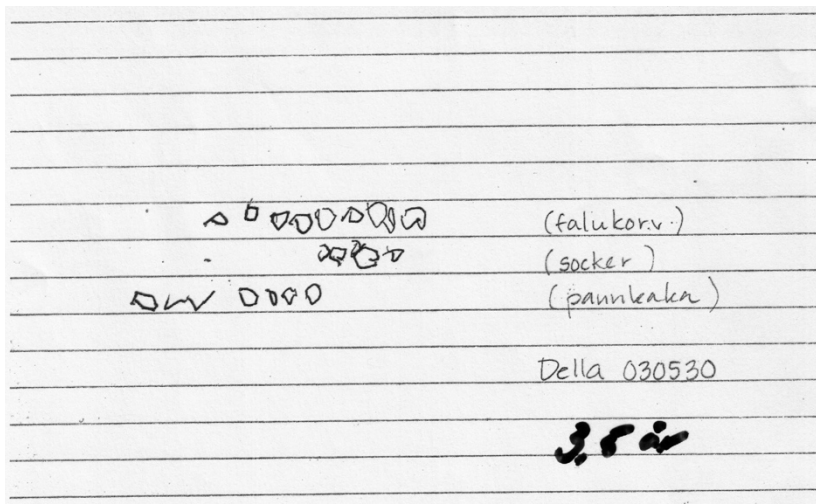 (falukorv)
(socker)
(pannkaka)
Della 030530
3,8 år